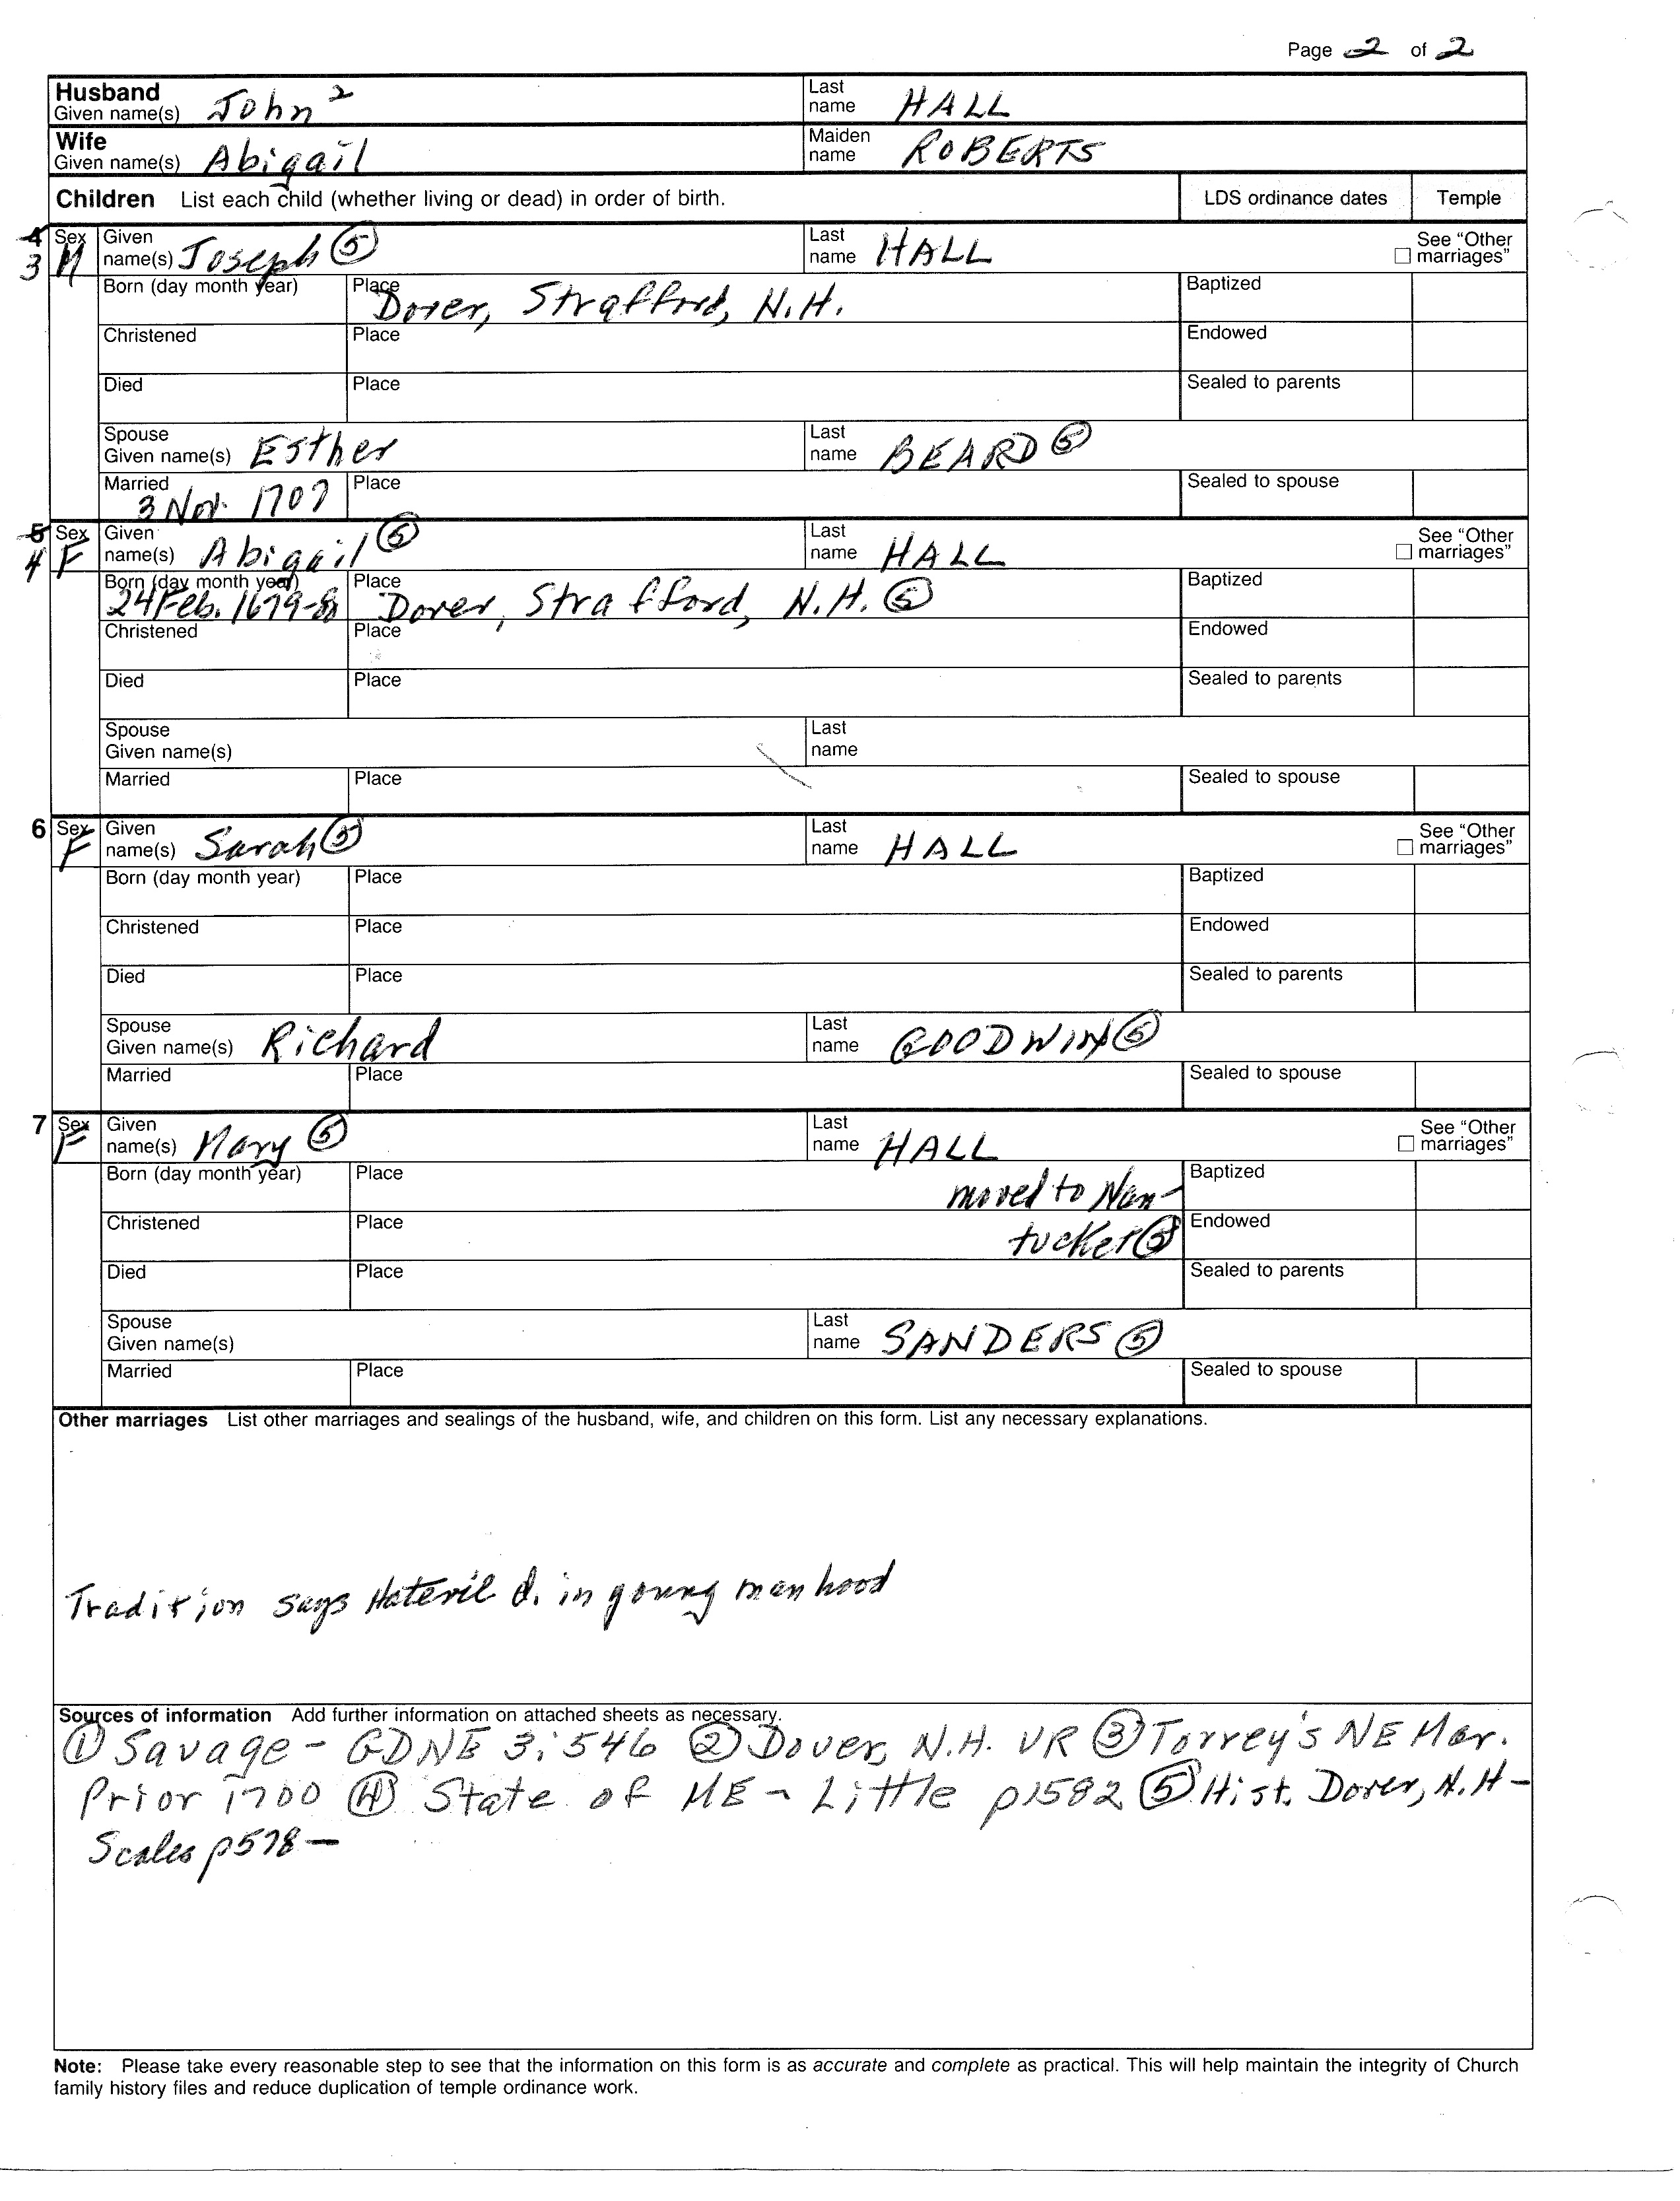 Page 2 of 2
Husband Given name(s) John 2 Last name HALL
Wife Given name(s) Abigail Maiden name ROBERTS
Children List each child (whether living or dead) in order of birth. LDS ordinance dates Temple
4 3 Sex M Given name(s) Joseph ⑤ Last name HALL See "Other marriages"
Born (day month year) Place Dover, Strafford, N.H. Baptized
Christened Place Endowed
Died Place Sealed to parents
Spouse Given name(s) Esther Last name BEARD ⑤
Married 3 Nov. 1707 Place Sealed to spouse
5 4 Sex F Given name(s) Abigail ⑤ Last name HALL See "Other marriages"
Born (day month year) 24 Feb. 1679-80 Place Dover, Strafford, N.H. ⑤ Baptized
Christened Place Endowed
Died Place Sealed to parents
Spouse Given name(s) Last name
Married Place Sealed to spouse
6 Sex F Given name(s) Sarah ⑤ Last name HALL See "Other marriages"
Born (day month year) Place Baptized
Christened Place Endowed
Died Place Sealed to parents
Spouse Given name(s) Richard Last name GOODWIN ⑤
Married Place Sealed to spouse
7 Sex F Given name(s) Mary ⑤ Last name HALL See "Other marriages"
Born (day month year) Place moved to Nan- Baptized
Christened Place tucket ⑤ Endowed
Died Place Sealed to parents
Spouse Given name(s) Last name SANDERS ⑤
Married Place Sealed to spouse
Other marriages List other marriages and sealings of the husband, wife, and children on this form. List any necessary explanations.
Tradition says Hatevil d. in young manhood
Sources of information Add further information on attached sheets as necessary.
① Savage - GDNE 3:546 ② Dover, N.H. VR ③ Torrey's NE Mar.
Prior 1700 ④ State of ME - Little p1582 ⑤ Hist. Dover, N.H -
Scales p578 -
Note: Please take every reasonable step to see that the information on this form is as accurate and complete as practical. This will help maintain the integrity of Church
family history files and reduce duplication of temple ordinance work.